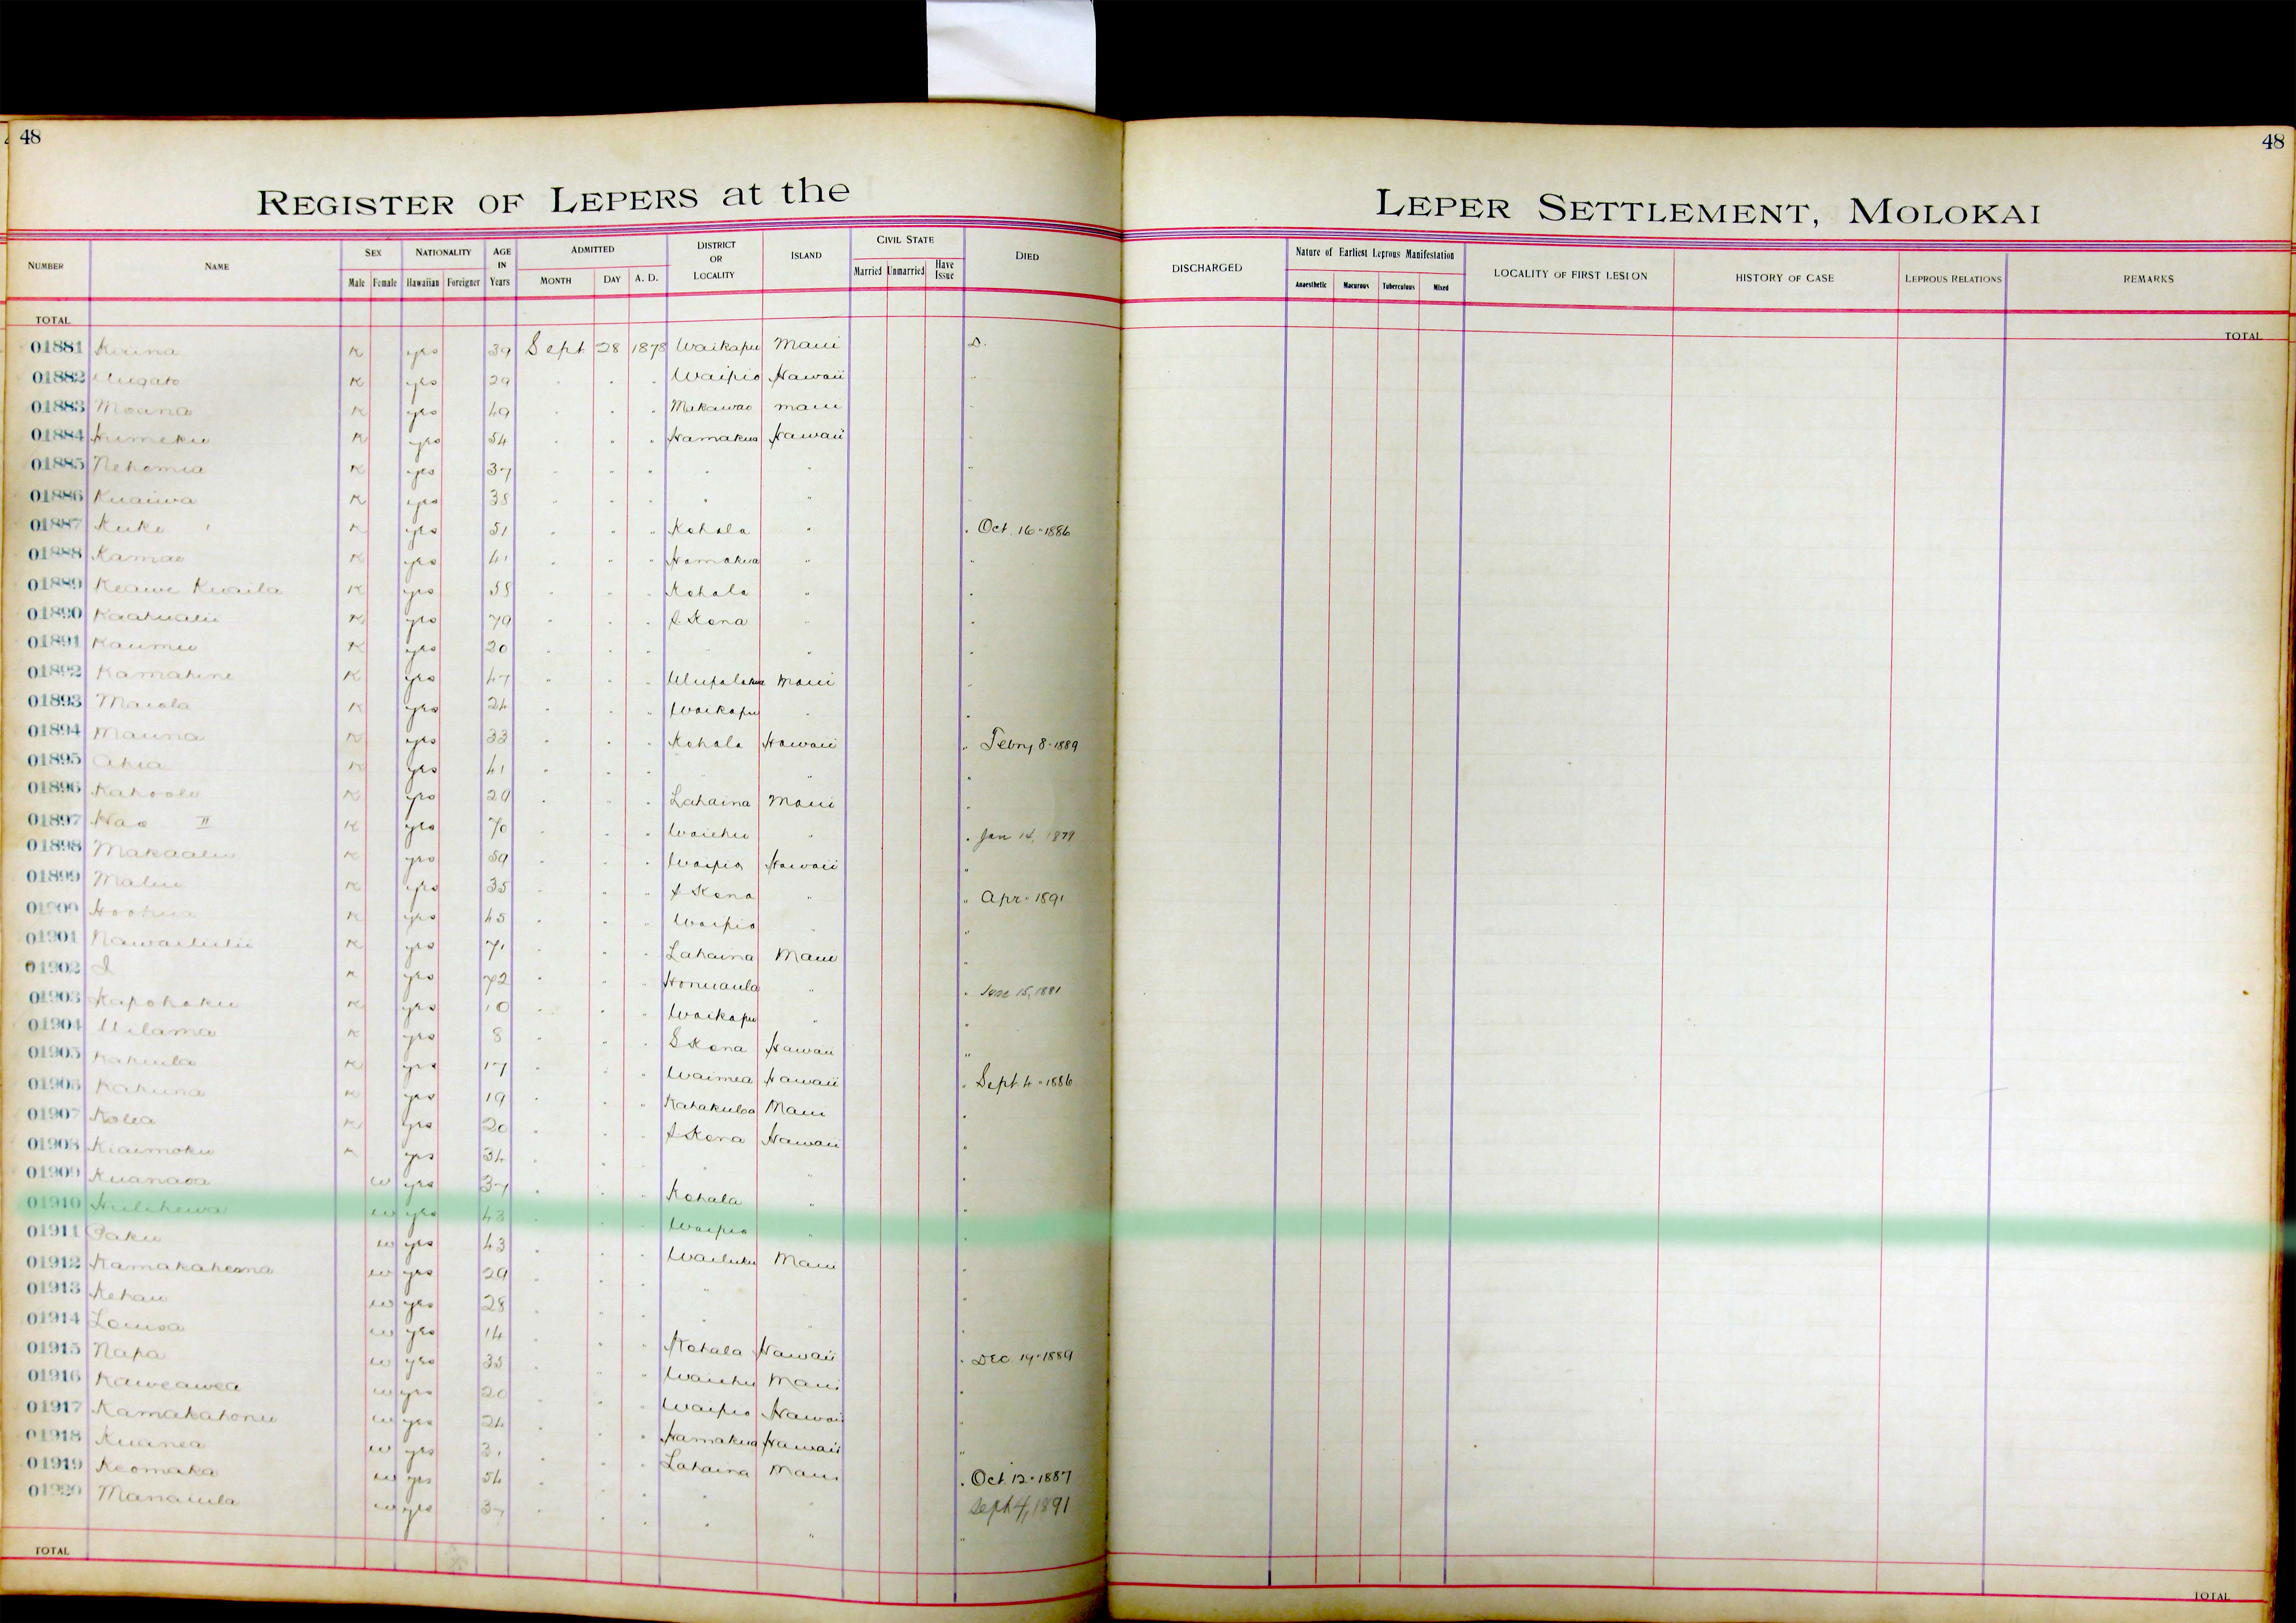 48
48
REGISTER OF LEPERS at the
LEPER SETTLEMENT, MOLOKAI
NUMBER NAME SEX NATIONALITY AGE IN Years ADMITTED DISTRICT OR LOCALITY ISLAND CIVIL STATE DIED
Male Female Hawaiian Foreigner MONTH DAY A. D. Married Unmarried Have Issue
DISCHARGED Nature of Earliest Leprous Manifestation LOCALITY OF FIRST LESION HISTORY OF CASE LEPROUS RELATIONS REMARKS
Anaesthetic Macurous Tuberculous Mixed
TOTAL TOTAL
01881 yes 39 Sept 28 1878 Waikapu Maui D.
01882 yes 29 Waipio Hawaii
01883 Moana yes 49 Makawao Maui
01884 Humeku yes 54 Hamakua Hawaii
01885 Nehemia yes 37
01886 Kuaiwa yes 38
01887 Kuke yes 51 Kohala Oct. 16-1886
01888 Kamae yes 41 Hamakua
01889 Keawe yes Kohala
01890 yes 79 Kona
01891 Kaumu yes 20
01892 Kamahine yes 47 Ulupalakua Maui
01893 Maiola yes 24 Waikapu
01894 Mauna yes 33 Kohala Hawaii Febry 8-1889
01895 Ahia yes 41
01896 Kahoole yes 29 Lahaina Maui
01897 Hao II yes 70 Waiehu Jan 14, 1879
01898 Makaalu yes 59 Waipio Hawaii
01899 Malu yes 35 Kona Apr-1891
01900 yes 45 Waipio
01901 Nawailiilii yes 71 Lahaina Maui
01902 I yes 72 Honuaula June 15, 1881
01903 Kapohaku yes 10 Waikapu
01904 Uilama yes 8 S Kona Hawaii
01905 Kahiula yes 17 Waimea Hawaii Sept 4-1886
01906 Kahuna yes 19 Kahakuloa Maui
01907 Kolea yes 20 Kona Hawaii
01908 Kiaimoku yes 34
01909 Kuanaoa w yes 37 Kohala
01910 Hulihewa w yes 43 Waipio
01911 Paku w yes 43 Wailuku Maui
01912 w yes 29
01913 Kehau w yes 28
01914 Louisa w yes 14 Kohala Hawaii Dec. 19-1889
01915 Napa w yes 35 Waiehu Maui
01916 Kaweawea w yes 20 Waipio Hawaii
01917 Kamakahonu w yes 24 Hamakua Hawaii
01918 Kuanea w yes 31 Lahaina Maui Oct 12-1887
01919 Keomaka w yes 54 Sept 4, 1891
01920 Manaiula w yes 37
TOTAL TOTAL